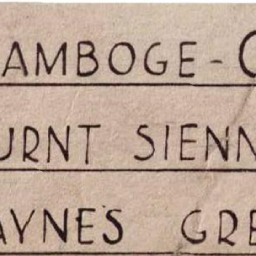 AMBOGE-C
URNT SIENN
AYNES GRE